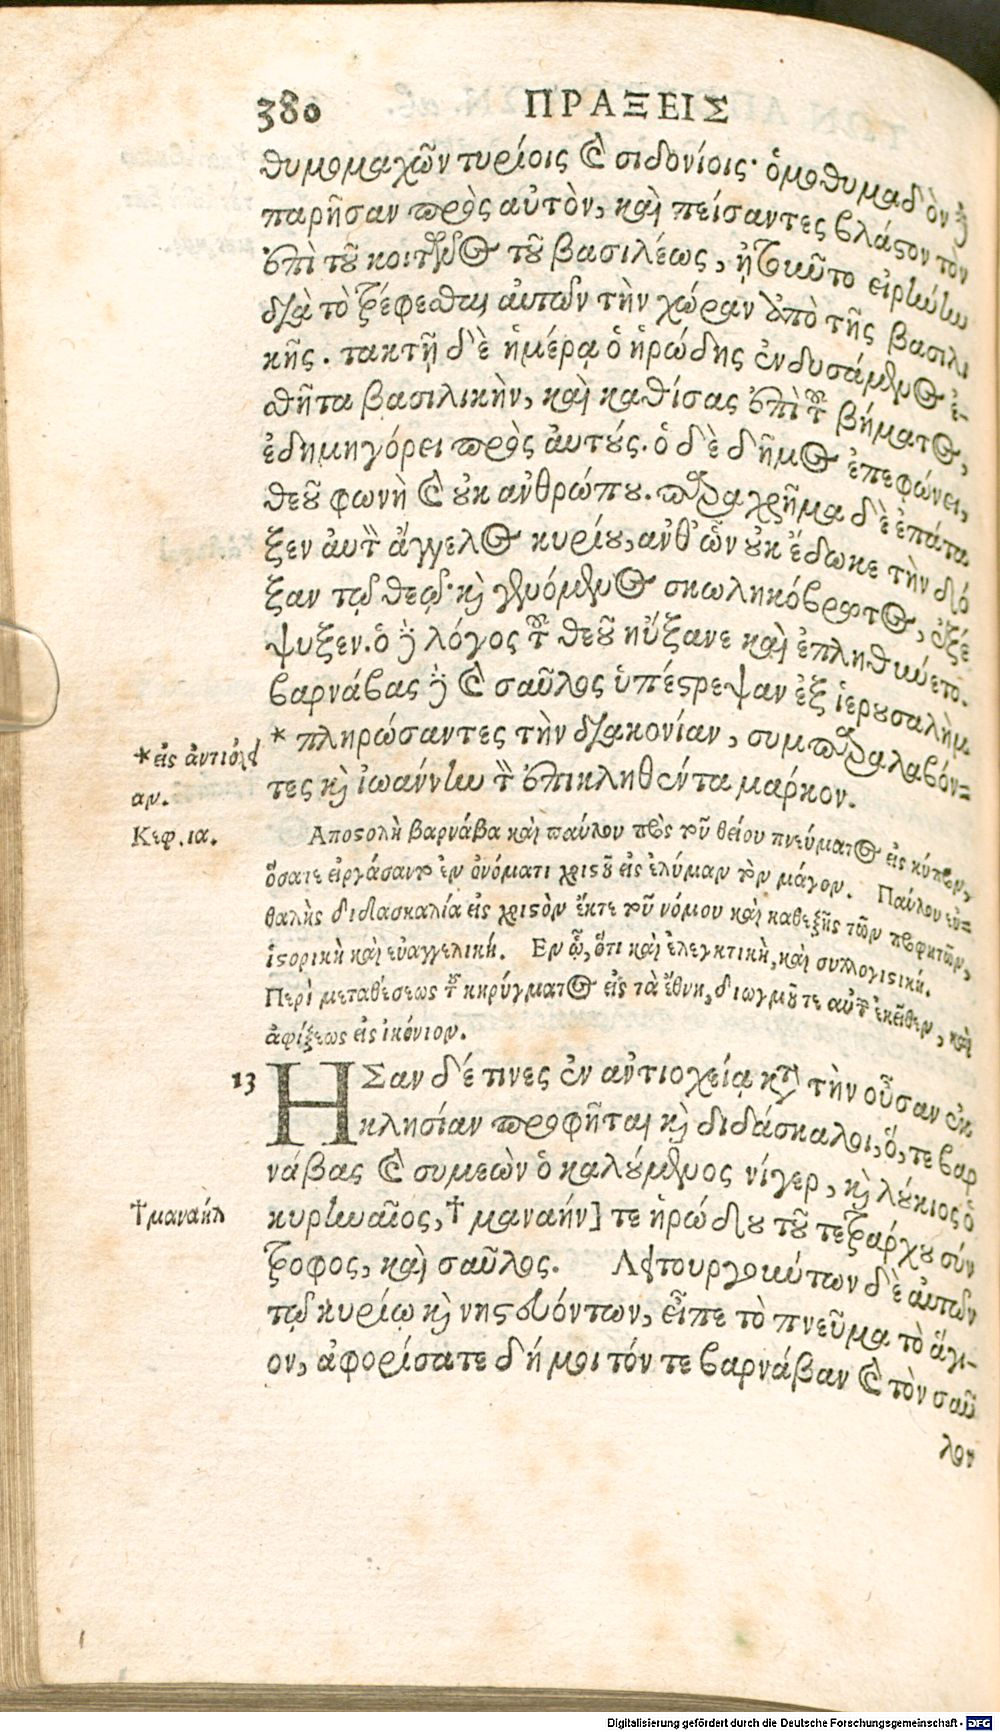 380 ΠΡΑΞΕΙΣ
θυμομαχῶν τυρίοις καὶ σιδονίοις· ὁμοθυμαδὸν δὲ
παρῆσαν πρὸς αὐτὸν, καὶ πείσαντες βλάστον τὸν
ἐπὶ τοῦ κοιτῶνος τοῦ βασιλέως, ᾐτοῦντο εἰρήνην
διὰ τὸ τρέφεσθαι αὐτῶν τὴν χώραν ἀπὸ τῆς βασιλι
κῆς. τακτῇ δὲ ἡμέρᾳ ὁ ἡρώδης ἐνδυσάμενος ἐ-
σθῆτα βασιλικὴν, καὶ καθίσας ἐπὶ τοῦ βήματος,
ἐδημηγόρει πρὸς αὐτούς. ὁ δὲ δῆμος ἐπεφώνει,
θεοῦ φωνὴ καὶ οὐκ ἀνθρώπου. παραχρῆμα δὲ ἐπάτα
ξεν αὐτὸν ἄγγελος κυρίου, ἀνθ' ὧν οὐκ ἔδωκε τὴν δό
ξαν τῷ θεῷ· καὶ γενόμενος σκωληκόβρωτος, ἐξέ
ψυξεν. ὁ δὲ λόγος τοῦ θεοῦ ηὔξανε καὶ ἐπληθύνετο.
βαρνάβας δὲ καὶ σαῦλος ὑπέστρεψαν ἐξ ἱερουσαλὴμ
* πληρώσαντες τὴν διακονίαν, συμπαραλαβόν=
τες καὶ ἰωάννην τὸν ἐπικληθέντα μάρκον.
*εἰς ἀντιόχει
αν.
Κεφ. ια.
Αποστολὴ βαρνάβα καὶ παύλου πρὸς τοῦ θείου πνεύματος εἰς κύπρον,
ὅσατε εἰργάσαντο ἐν ὀνόματι χριστοῦ εἰς ἐλύμαν τὸν μάγον. Παύλου εὐ=
θαλὴς διδασκαλία εἰς χριστὸν ἔκτε τοῦ νόμου καὶ καθεξῆς τῶν προφητῶν,
ἱστορικὴ καὶ εὐαγγελική. Εν ᾧ, ὅτι καὶ ἐλεγκτικὴ, καὶ συλλογιστική.
Περὶ μεταθέσεως τοῦ κηρύγματος εἰς τὰ ἔθνη, διωγμοῦ τε αὐτῶν ἐκεῖθεν, καὶ
ἀφίξεως εἰς ἰκόνιον.
13 ΗΣαν δέ τινες ἐν ἀντιοχείᾳ κατὰ τὴν οὖσαν ἐκ
κλησίαν προφῆται καὶ διδάσκαλοι, ὅ, τε βαρ
νάβας καὶ συμεὼν ὁ καλούμενος νίγερ, καὶ λούκιος ὁ
κυρηναῖος, † μαναήν] τε ἡρώδου τοῦ τετράρχου σύν
τροφος, καὶ σαῦλος. Λειτουργούντων δὲ αὐτῶν
τῷ κυρίῳ καὶ νηστευόντων, εἶπε τὸ πνεῦμα τὸ ἅγι-
ον, ἀφορίσατε δή μοι τόν τε βαρνάβαν καὶ τὸν σαῦ
λον
†μαναήλ
Digitalisierung gefördert durch die Deutsche Forschungsgemeinschaft - DFG